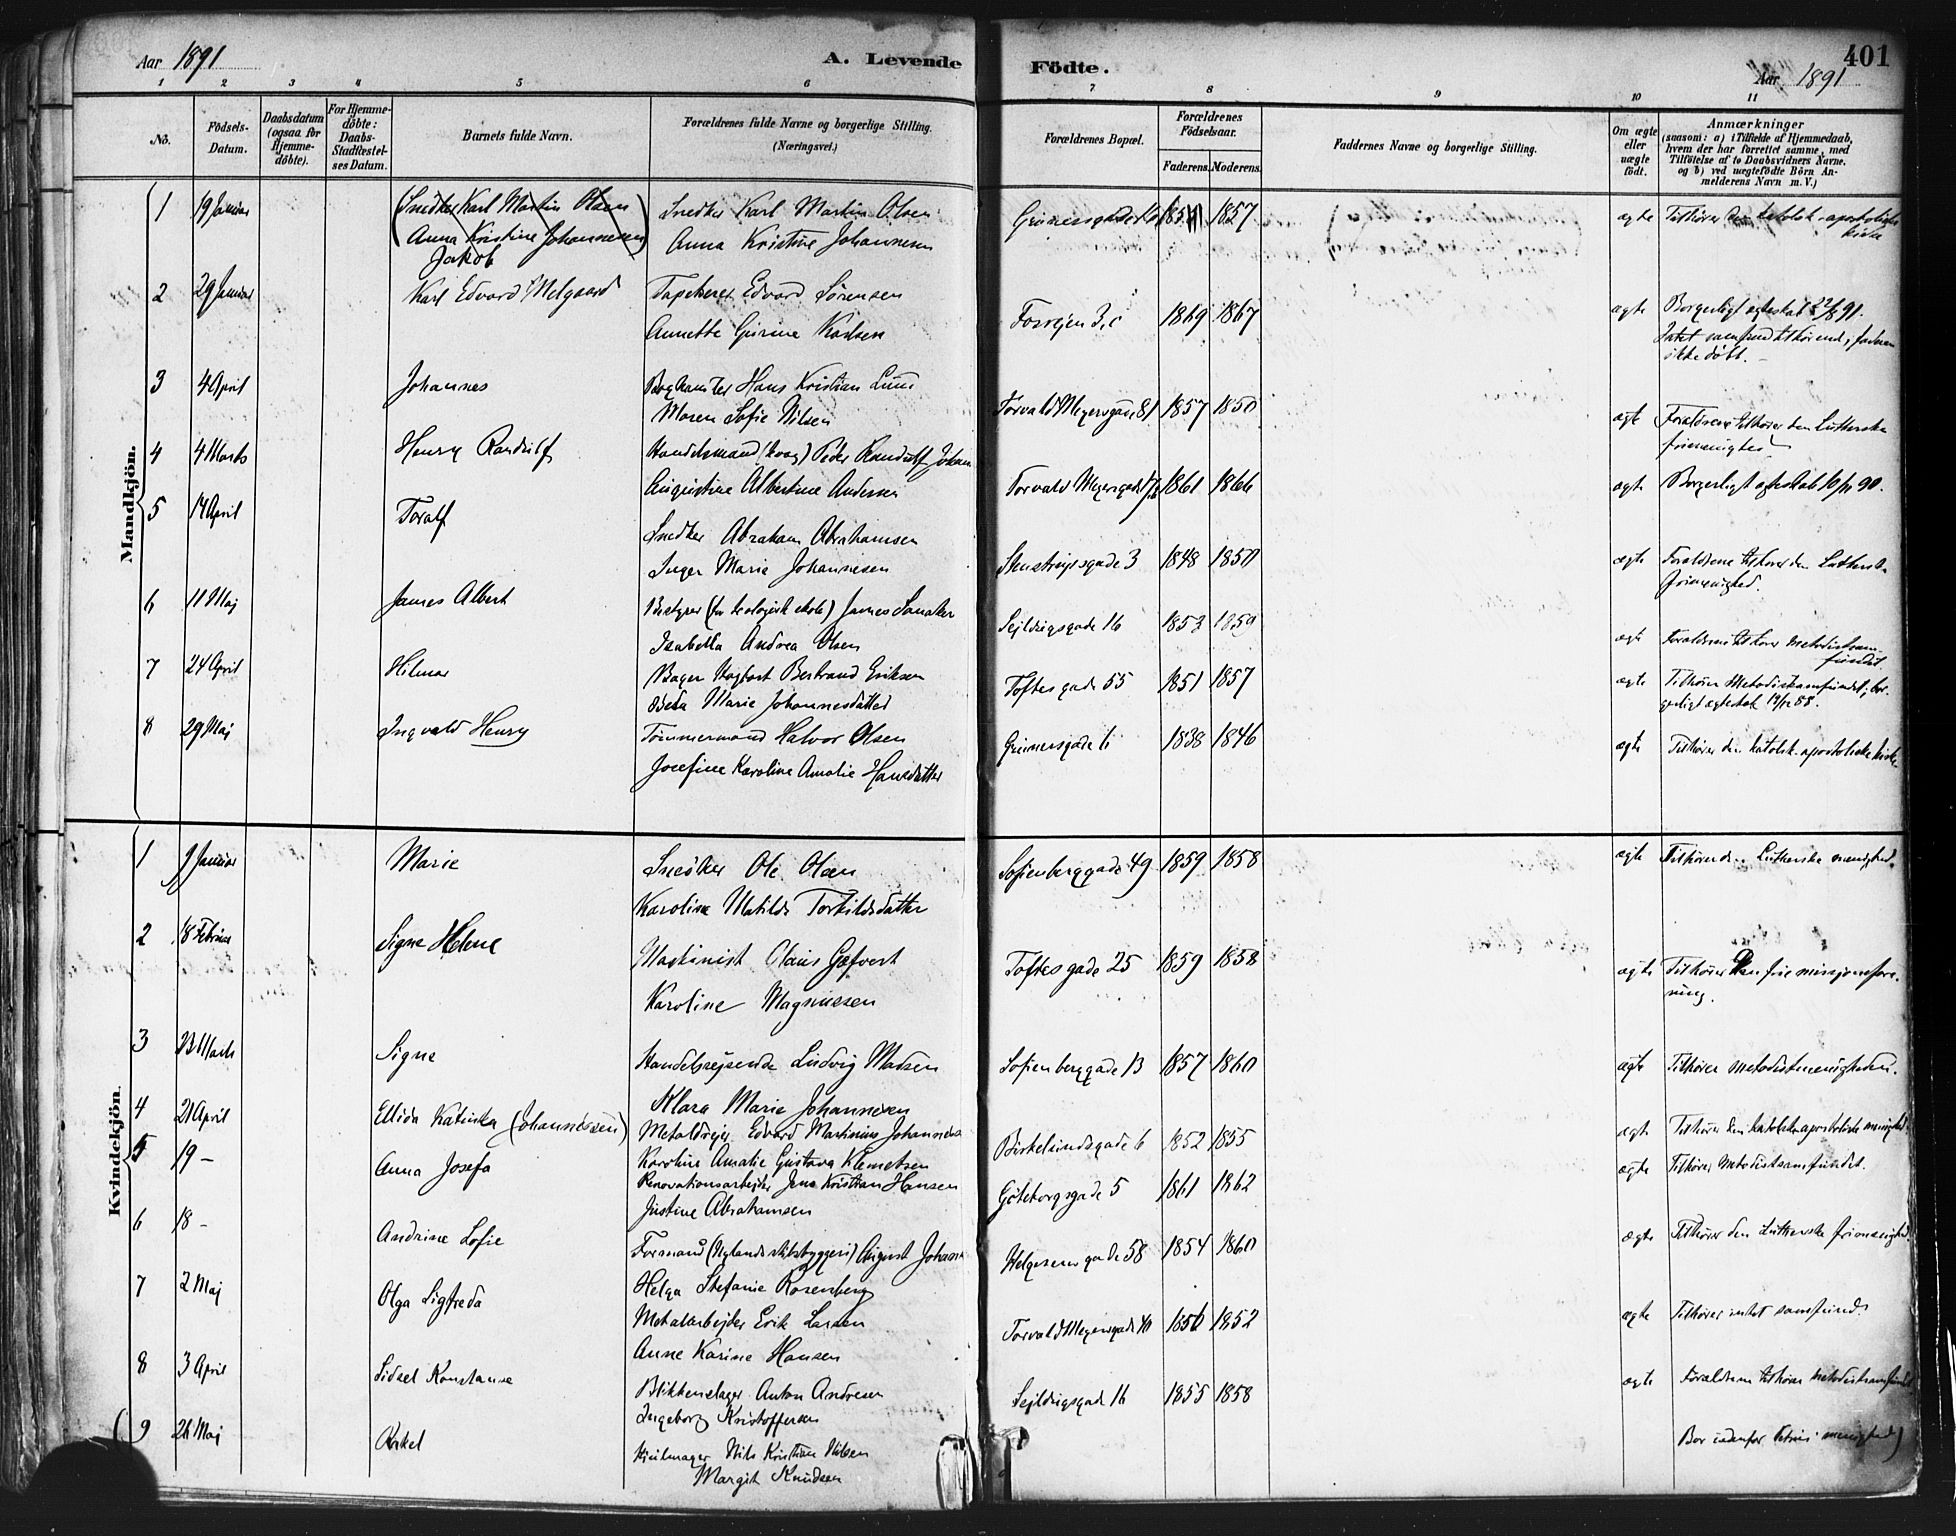 Aar 1891
A. Levende
Födte.
401
Aar 1891
1 2 3 4 5 6 7 8 9 10 11
No.
Födsels-Datum.
Daabsdatum (ogsaa for Hjemme-döbte).
For Hjemme-döbte: Daabs-Stadfæstel-ses Datum.
Barnets fulde Navn.
Forældrenes fulde Navne og borgerlige Stilling. (Næringsvei.)
Forældrenes Bopæl.
Forældrenes Födselsaar.
Faderens. Moderens.
Faddernes Navne og borgerlige Stilling.
Om ægte eller uægte födt.
Anmærkninger
(saasom: a) i Tilfælde af Hjemmedaab, hvem der har forrettet samme, med Tilföielse af to Daabsvidners Navne, og b) ved uægtefödte Börn Anmelderens Navn m. V.)
Mandkjön.
1 19 Januar (Snedker Karl Martin Olsen Snedker Karl Martin Olsen Grünersgade 1857 ægte Tilhører den katolsk-apostoliske
Anna Kristine Johannesen) Anna Kristine Johannesen kirke
Jakob
2 29 Januar Karl Edvard Melgaard Tapetserer Edvard Sörensen Forvejen 3,c 1869 1867 ægte Borgerligt ægteskab 91.
Annette Gurine Karlsen Intet samfund tilhörende, faderen
ikke döbt.
3 4 April Johannes Hans Kristian Torvald Meyersgade 81 1857 1850 ægte Forældrene tilhører den Lutherske
Maren Sofie Nilsen frimenighed
4 4 Marts Henry Randulf Handelsmand Peder Randulf Johan Torvald Meyersgade 1861 1866 ægte Borgerligt ægteskab 90.
Augustine Albertine Andersen
5 14 April Toralf Snedker Abraham Abrahamsen 3 1848 1850 ægte Forældrene tilhører den Lutherske
Inger Marie Johannesen frimenighed.
6 11 Maj James Albert Bestyrer (for teologisk skole) James Sejldugsgade 16 1853 1859 ægte Forældrene tilhører Metodistsam-
Isabella Andrea Olsen fundet
7 24 April Hilmar Bager Hagbart Bertrand Eriksen Toftesgade 55 1851 1857 ægte Tilhører Metodistsamfundet; bor-
Marie Johannesdatter gerligt ægteskab 88.
8 29 Maj Ingvald Henry Tömmermand Halvor Olsen Grünersgade 1838 1846 ægte Tilhörer den katolsk-apostoliske kirke
Josefine Karoline Amalie Hansdatter
Kvindekjön.
1 9 Januar Marie Snedker Ole Olsen Sofienberggade 49 1859 1858 ægte Tilhører den Lutherske menighed
Karoline Matilde Torkildsdatter
2 18 Februar Signe Helene Maskinist Olaus Gefvert Toftesgade 25 1859 1858 ægte Tilhører Den frie misjonsfore-
Karoline Magnussen ning.
3 23 Marts Signe Handelsrejsende Ludvig Madsen Sofienberggade 13 1857 1860 ægte Tilhörer Metodistmenigheden.
Klara Marie Johannesen
4 21 April Ellida Katinka (Johannessen) Metaldrejer Edvard Martinius Johannesen Birkelundsgade 6 1852 1855 ægte Tilhører den katolsk apostoliske menighed
Karoline Amalie Gustava Klemetsen
5 19 – Anna Josefa Renovationsarbejder Jens Kristian Hansen Göteborggade 5 1861 1862 ægte Tilhörer Metodistsamfundet.
Justine Abrahamsen
6 18 – Andrine Sofie Formand (Nylands skibsbyggeri) August Johans Helgesensgade 58 1854 1860 ægte Tilhører den Lutherske frimenighed
Helga Stefanie Rosenberg
7 2 Maj Olga Sigfreda Metalarbejder Erik Larsen Torvald Meyersgade 1856 1852 ægte Tilhører intet samfund.
Anne Karine Hansen
8 3 April Sidsel Konstanse Blikkenslager Anton Andresen Sejldugsgade 16 1855 1858 ægte Forældrene tilhører Metodistsamfundet
Ingeborg Kristoffersen
(9 26 Maj Hjulmager Nils Kristian Nilsen Bor indenfor Petrus menighed)
Margit Knudsen